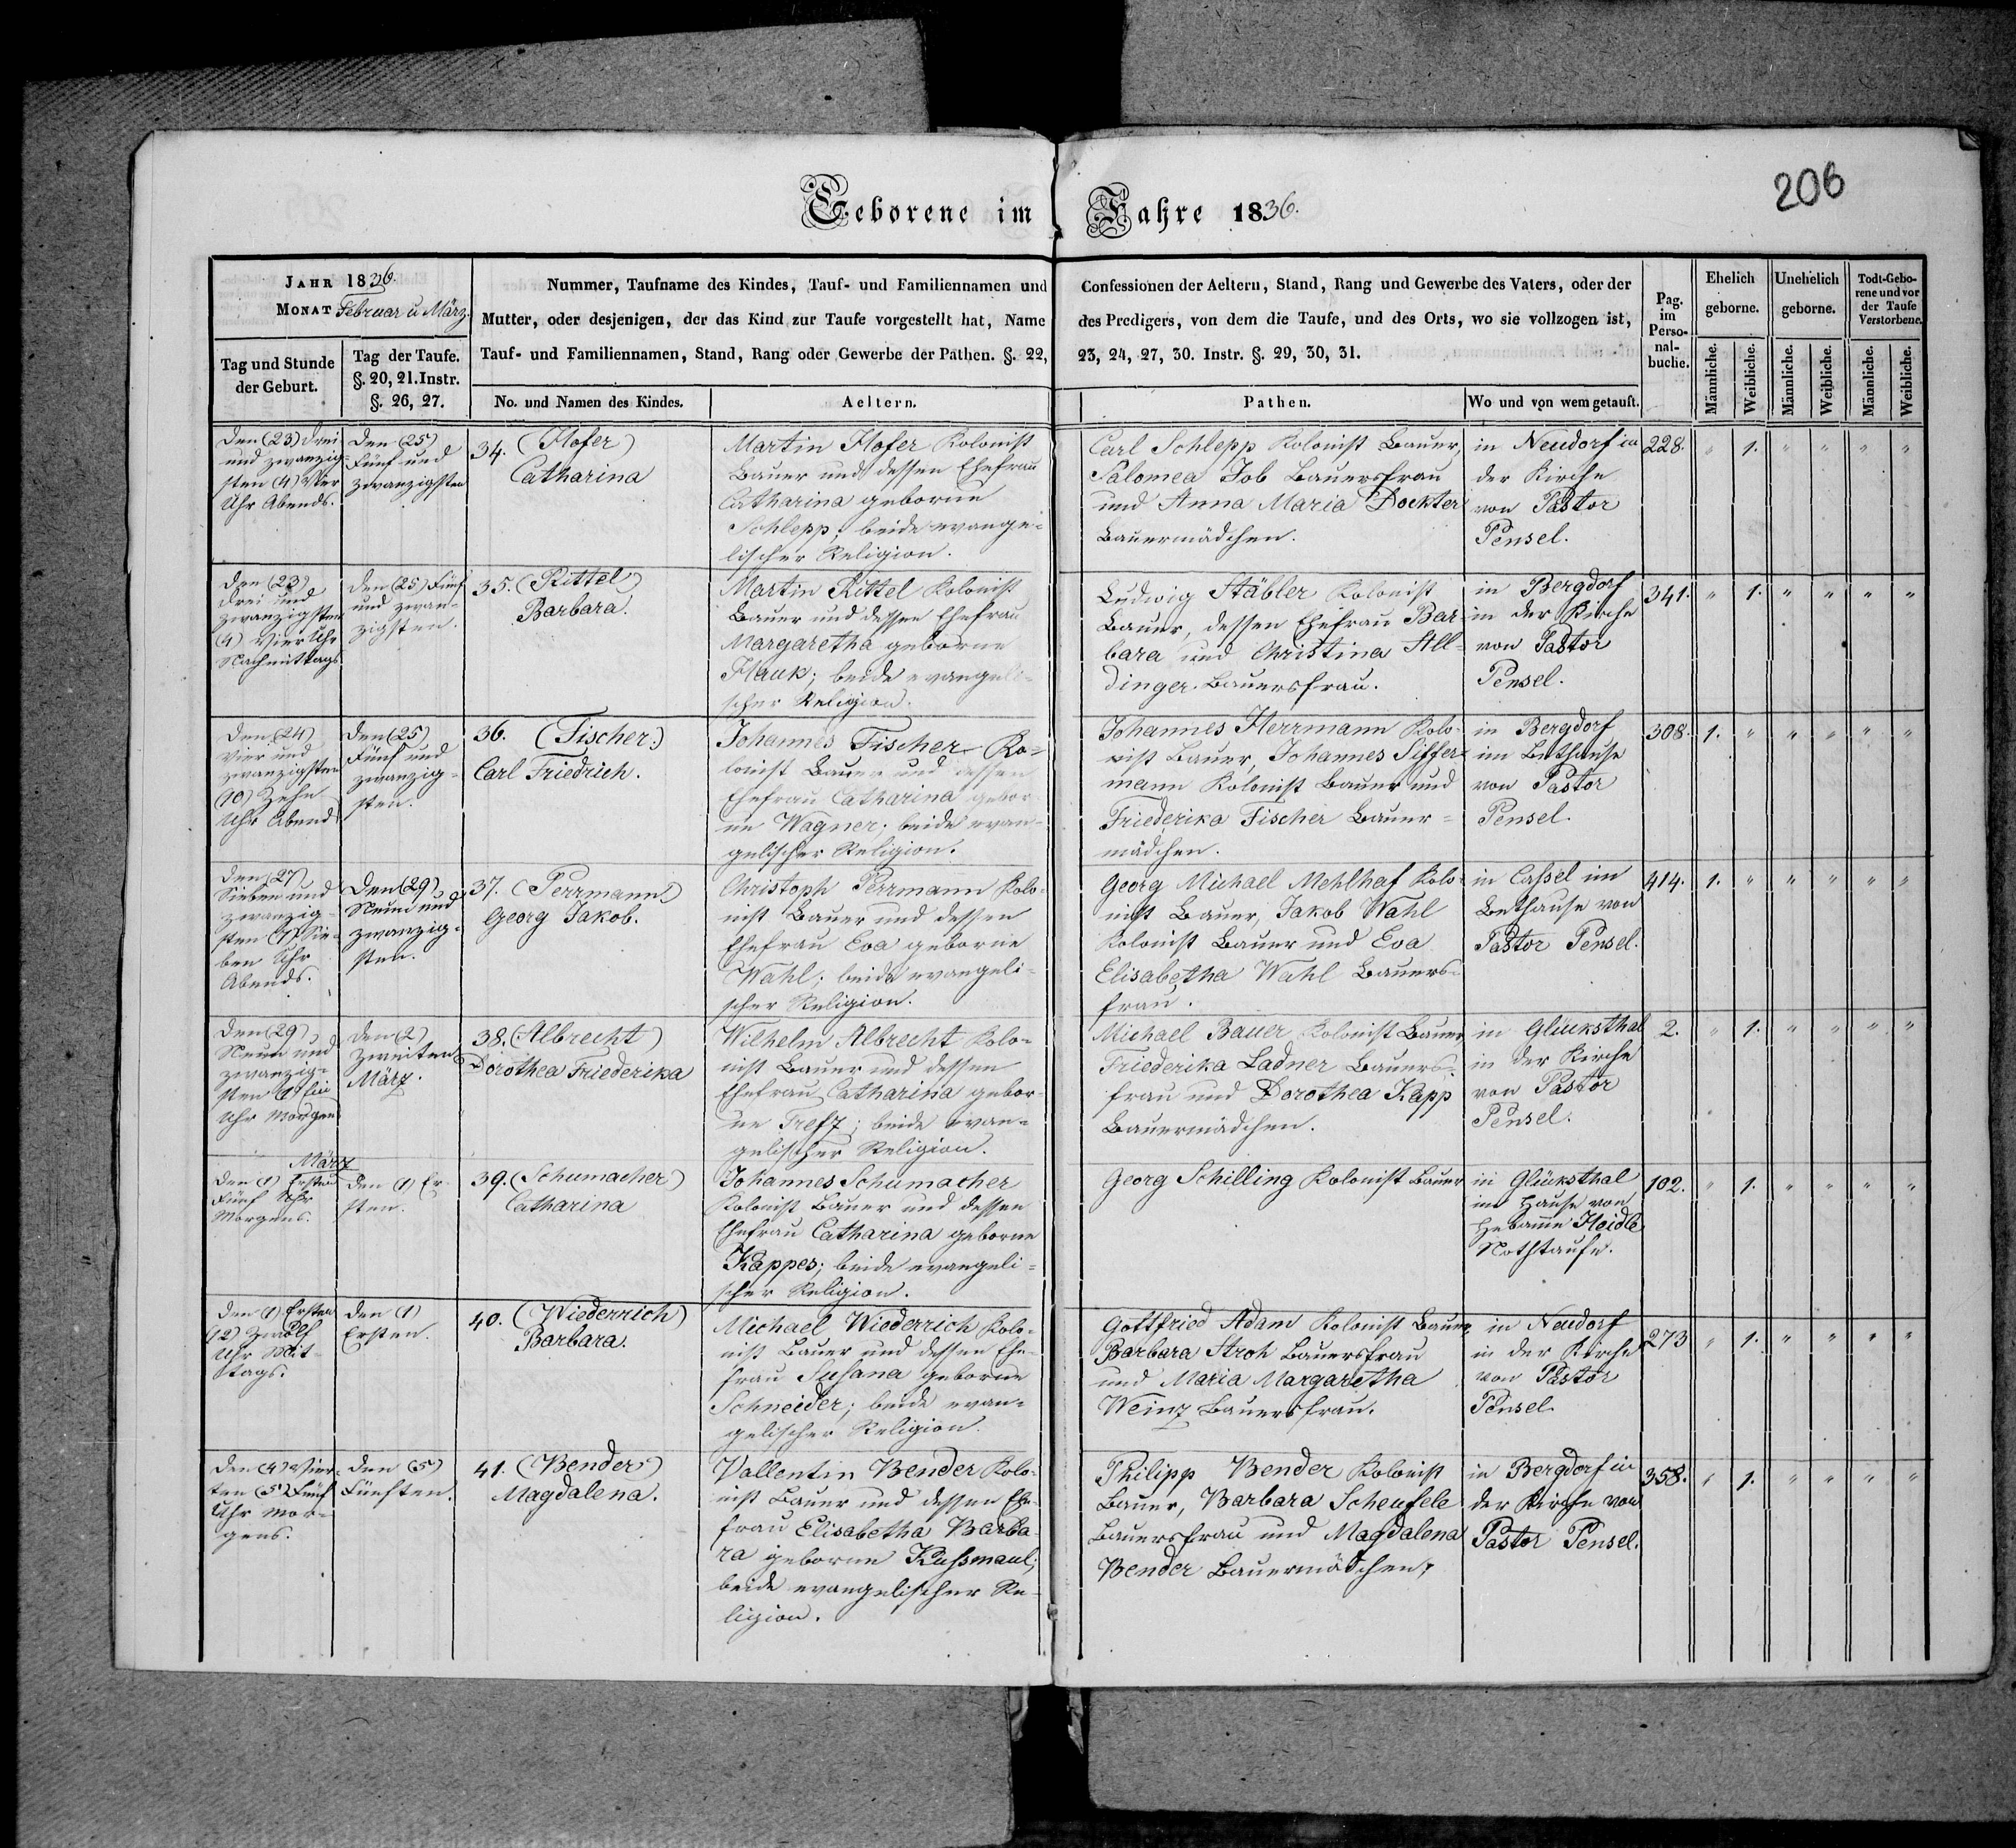 206
Geborene im Jahre 1836.
JAHR 1836.
MONAT Februar u März.
Nummer, Taufname des Kindes, Tauf- und Familiennamen und Confessionen der Aeltern, Stand, Rang und Gewerbe des Vaters, oder der
Mutter, oder desjenigen, der das Kind zur Taufe vorgestellt hat, Name des Predigers, von dem die Taufe, und des Orts, wo sie vollzogen ist,
Tauf- und Familiennamen, Stand, Rang oder Gewerbe der Pathen. §. 22, 23, 24, 27, 30. Instr. §. 29, 30, 31.
Tag und Stunde
der Geburt.
Tag der Taufe.
§. 20, 21. Instr.
§. 26, 27.
No. und Namen des Kindes.
Aeltern.
Pathen.
Wo und von wem getauft.
Pag.
im
Perso-
nal-
buche.
Ehelich
geborne.
Unehelich
geborne.
Todt-Gebo-
rene und vor
der Taufe
Verstorbene.
Männliche.
Weibliche.
Männliche.
Weibliche.
Männliche.
Weibliche.
Den (23) Drei
und zwanzig-
sten (4) Vier
Uhr Abends.
Den (25)
Fünf und
zwanzigsten
34. (Hofer)
Catharina
Martin Hofer Kolonist
Bauer und dessen Ehefrau
Catharina geborne
Schlepp; beide evange-
lischer Religion.
Carl Schlepp Kolonist Bauer,
Salomea Job Bauersfrau
und Anna Maria Dockter
Bauermädchen.
in Neudorf in
der Kirche
von Pastor
Pensel.
228. " 1. " " " "
Den (23)
Drei und
zwanzigsten
(4) Vier Uhr
Nachmittags
Den (25) Fünf
und zwan-
zigsten.
35. (Rittel)
Barbara.
Martin Rittel Kolonist
Bauer und dessen Ehefrau
Margaretha geborne
Hauk; beide evangeli-
scher Religion.
Ludwig Stäbler Kolonist
Bauer, dessen Ehefrau Bar
bara und Christina All-
dinger Bauersfrau.
in Bergdorf
in der Kirche
von Pastor
Pensel.
341. " 1. " " " "
Den (24)
Vier und
zwanzigsten
(10) Zehn
Uhr Abend
Den (25)
Fünf und
zwanzig-
sten.
36. (Fischer.)
Carl Friedrich.
Johannes Fischer Ko-
lonist Bauer und dessen
Ehefrau Catharina gebor
ne Wagner; beide evan-
gelischer Religion.
Johannes Herrmann Kolo-
nist Bauer, Johannes Siffer-
mann Kolonist Bauer und
Friederika Fischer Bauer-
mädchen.
in Bergdorf
im Bethause
von Pastor
Pensel.
308. 1. " " " " "
Den (27)
Sieben und
zwanzig-
sten (7) Sie-
ben Uhr
Abends.
Den (29)
Neun und
zwanzig-
sten.
37. (Perrmann)
Georg Jakob.
Christoph Perrmann Kolo-
nist Bauer und dessen
Ehefrau Eva geborne
Wahl; beide evangeli-
scher Religion.
Georg Michael Mehlhaf Kolo-
nist Bauer, Jakob Wahl
Kolonist Bauer und Eva
Elisabetha Wahl Bauers-
frau.
in Cassel im
Bethause von
Pastor Pensel.
414. 1. " " " " "
Den (29)
Neun und
zwanzig-
sten (1) Ein
Uhr Morgen
Den (2)
Zweiten
März.
38. (Albrecht)
Dorothea Friederika
Wilhelm Albrecht Kolo-
nist Bauer und dessen
Ehefrau Catharina gebor-
ne Trefz; beide evan-
gelischer Religion.
Michael Bauer Kolonist Bauer
Friederika Ladner Bauers-
frau und Dorothea Kapp
Bauermädchen.
in Glücksthal
in der Kirche
von Pastor
Pensel.
2. " 1. " " " "
März
Den (1) Ersten
Fünf Uhr
Morgens.
Den (1) Er-
sten.
39. (Schumacher)
Catharina
Johannes Schumacher
Kolonist Bauer und dessen
Ehefrau Catharina geborne
Kappes; beide evangeli-
scher Religion.
Georg Schilling Kolonist Bauer
in Glücksthal
im Hause von
Hebamme Heidle
Nothtaufe.
102. " 1. " " " "
Den (1) Ersten
(12) Zwölf
Uhr Mit-
tags.
Den (1)
Ersten.
40. (Wiederrich)
Barbara.
Michael Wiederrich Kolo-
nist Bauer und dessen Ehe-
frau Susana geborne
Schneider; beide evan-
gelischer Religion.
Gottfried Adam Kolonist Bauer,
Barbara Stroh Bauersfrau
und Maria Margaretha
Weinz Bauersfrau.
in Neudorf
in der Kirche
von Pastor
Pensel.
273 " 1. " " " "
Den (4) Vier-
ten (5) Fünf
Uhr Mor-
gens.
Den (5)
Fünften.
41. (Bender)
Magdalena.
Vallentin Bender Kolo-
nist Bauer und dessen Ehe-
frau Elisabetha Barba-
ra geborne Kussmaul;
beide evangelischer Re-
ligion.
Philipp Bender Kolonist
Bauer, Barbara Scheufele
Bauersfrau und Magdalena
Bender Bauermädchen,
in Bergdorf in
der Kirche von
Pastor Pensel.
358. " 1. " " " "